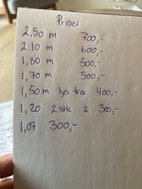 Priser
2,50 m 700,-
2.10 m 600,-
1,80 m 500,-
1,70 m 500,-
1,50 m lys tre 400,-
1,20 2 stk a 300,-
1,07 300,-